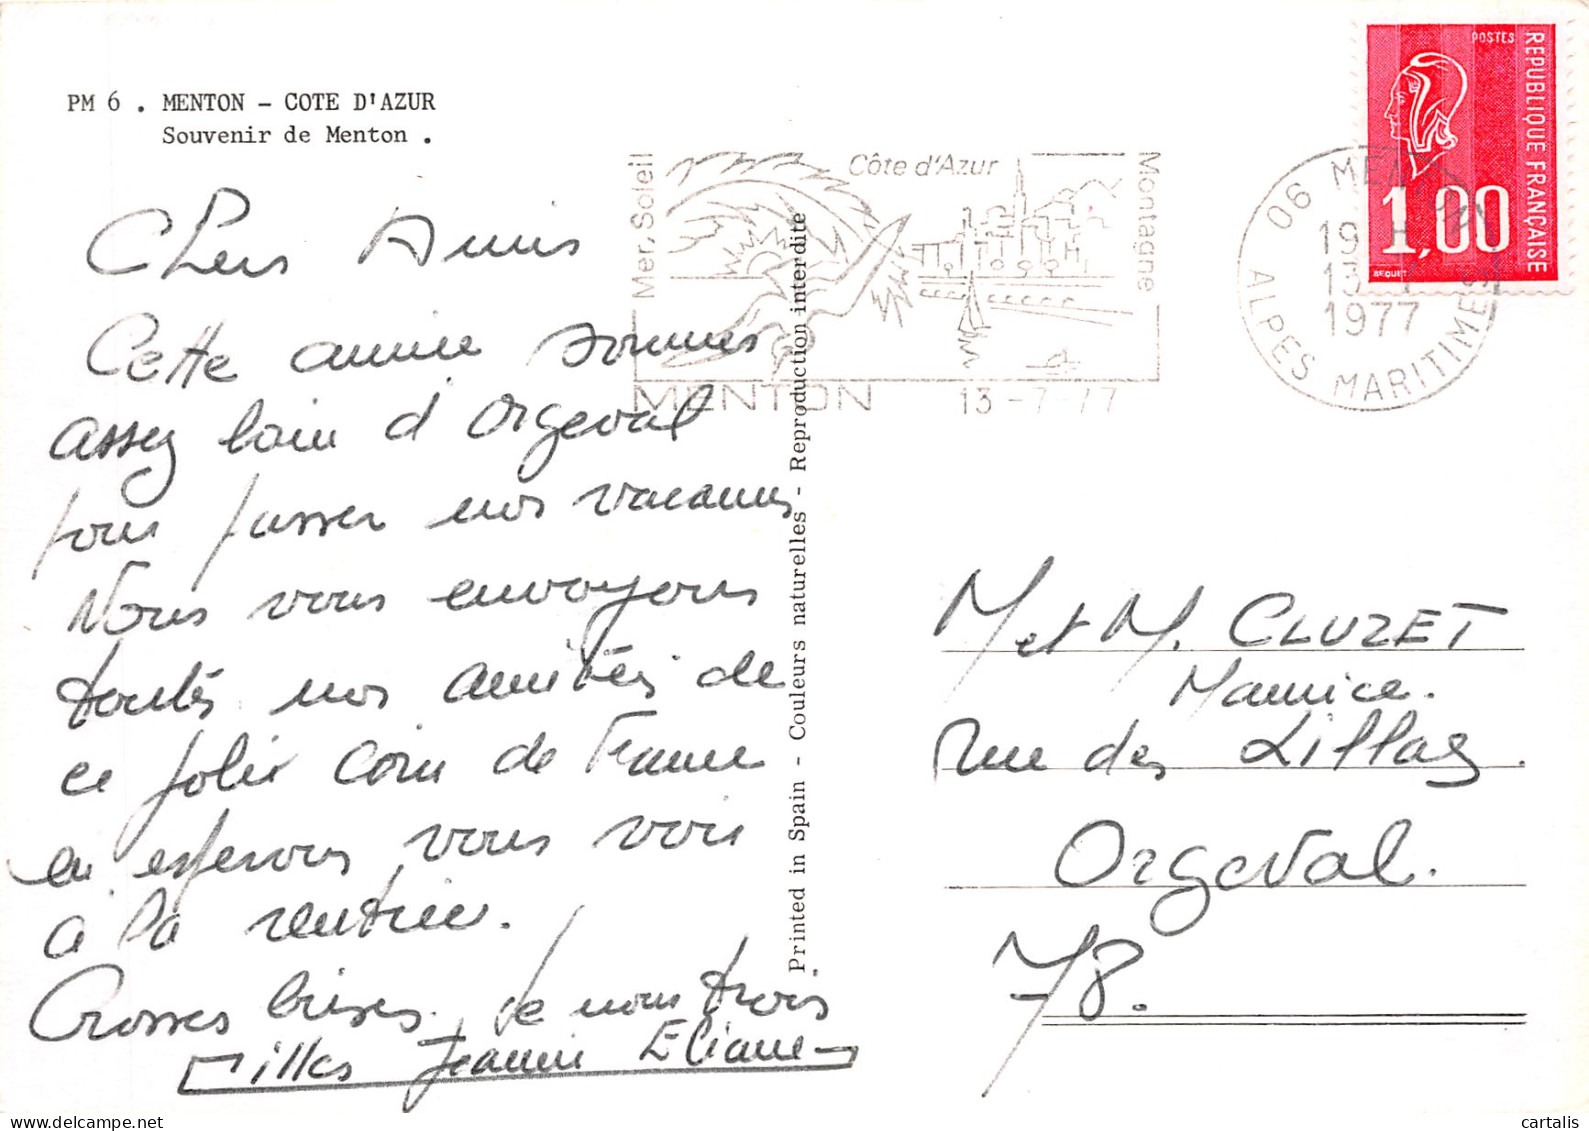 PM 6 . MENTON - COTE D'AZUR
Souvenir de Menton .
Chers Amis
Cette année sommes
assez loin d'Orgeval
pour passer nos vacances
Nous vous envoyons
toutes nos amitiés de
ce joli coin de France
en espérons vous voir
à la rentrée.
Grosses bises. de nous trois
Gilles Jeannie Eliane
Printed in Spain - Couleurs naturelles - Reproduction interdite
Mer, Soleil
Côte d'Azur
Montagne
MENTON 13 -7-77
06 MENTON
19 H
13 -7
1977
ALPES MARITIMES
POSTES
REPUBLIQUE FRANÇAISE
1,00
BEQUET
M et M. CLUZET
Maurice.
Rue des Lillas.
Orgeval.
78.
www.delcampe.net
cartalis